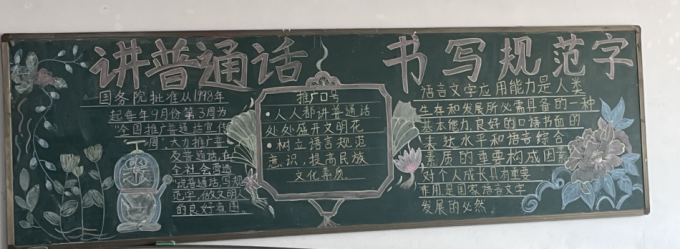 讲普通话 书写规范字
国务院批准从1998年
起每年9月份第3周为
全国推广普通话宣传
周,大力推广普
及普通话,在
全社会营造
说普通话写规
范字,做文明人
的良好氛围
推广口号
·人人都讲普通话
处处盛开文明花
·树立语言规范
意识,提高民族
文化素质
语言文字应用能力是人类
生存和发展所必需具备的一种
基本能力,良好的口语书面的
表达水平和语言综合
素质的重要构成因素
对个人成长具有重要
作用是国家语言文字
发展的必然